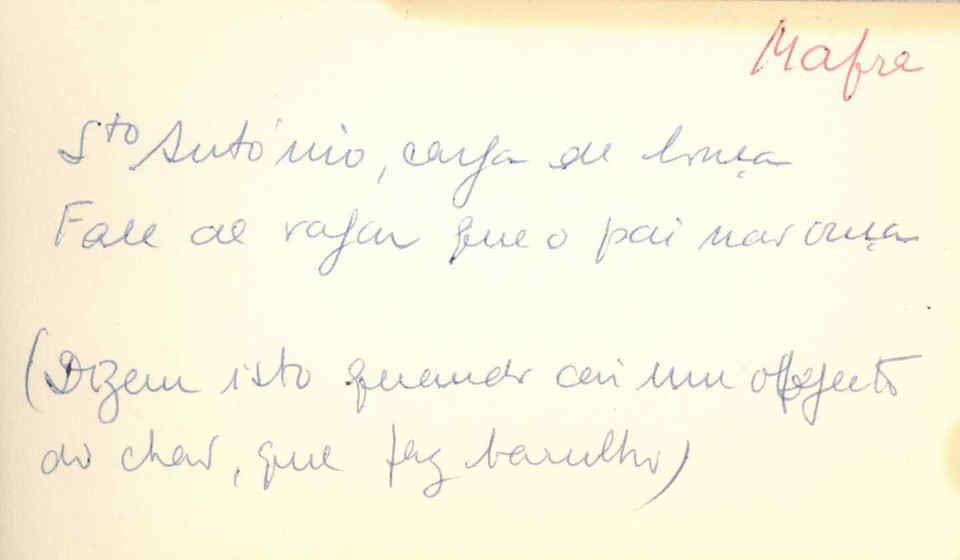 Mafra
Sto António, carga de louça
Fale de vagar que o pai não ouça
(Dizem isto quando cai um objecto
do chão, que faz barulho)